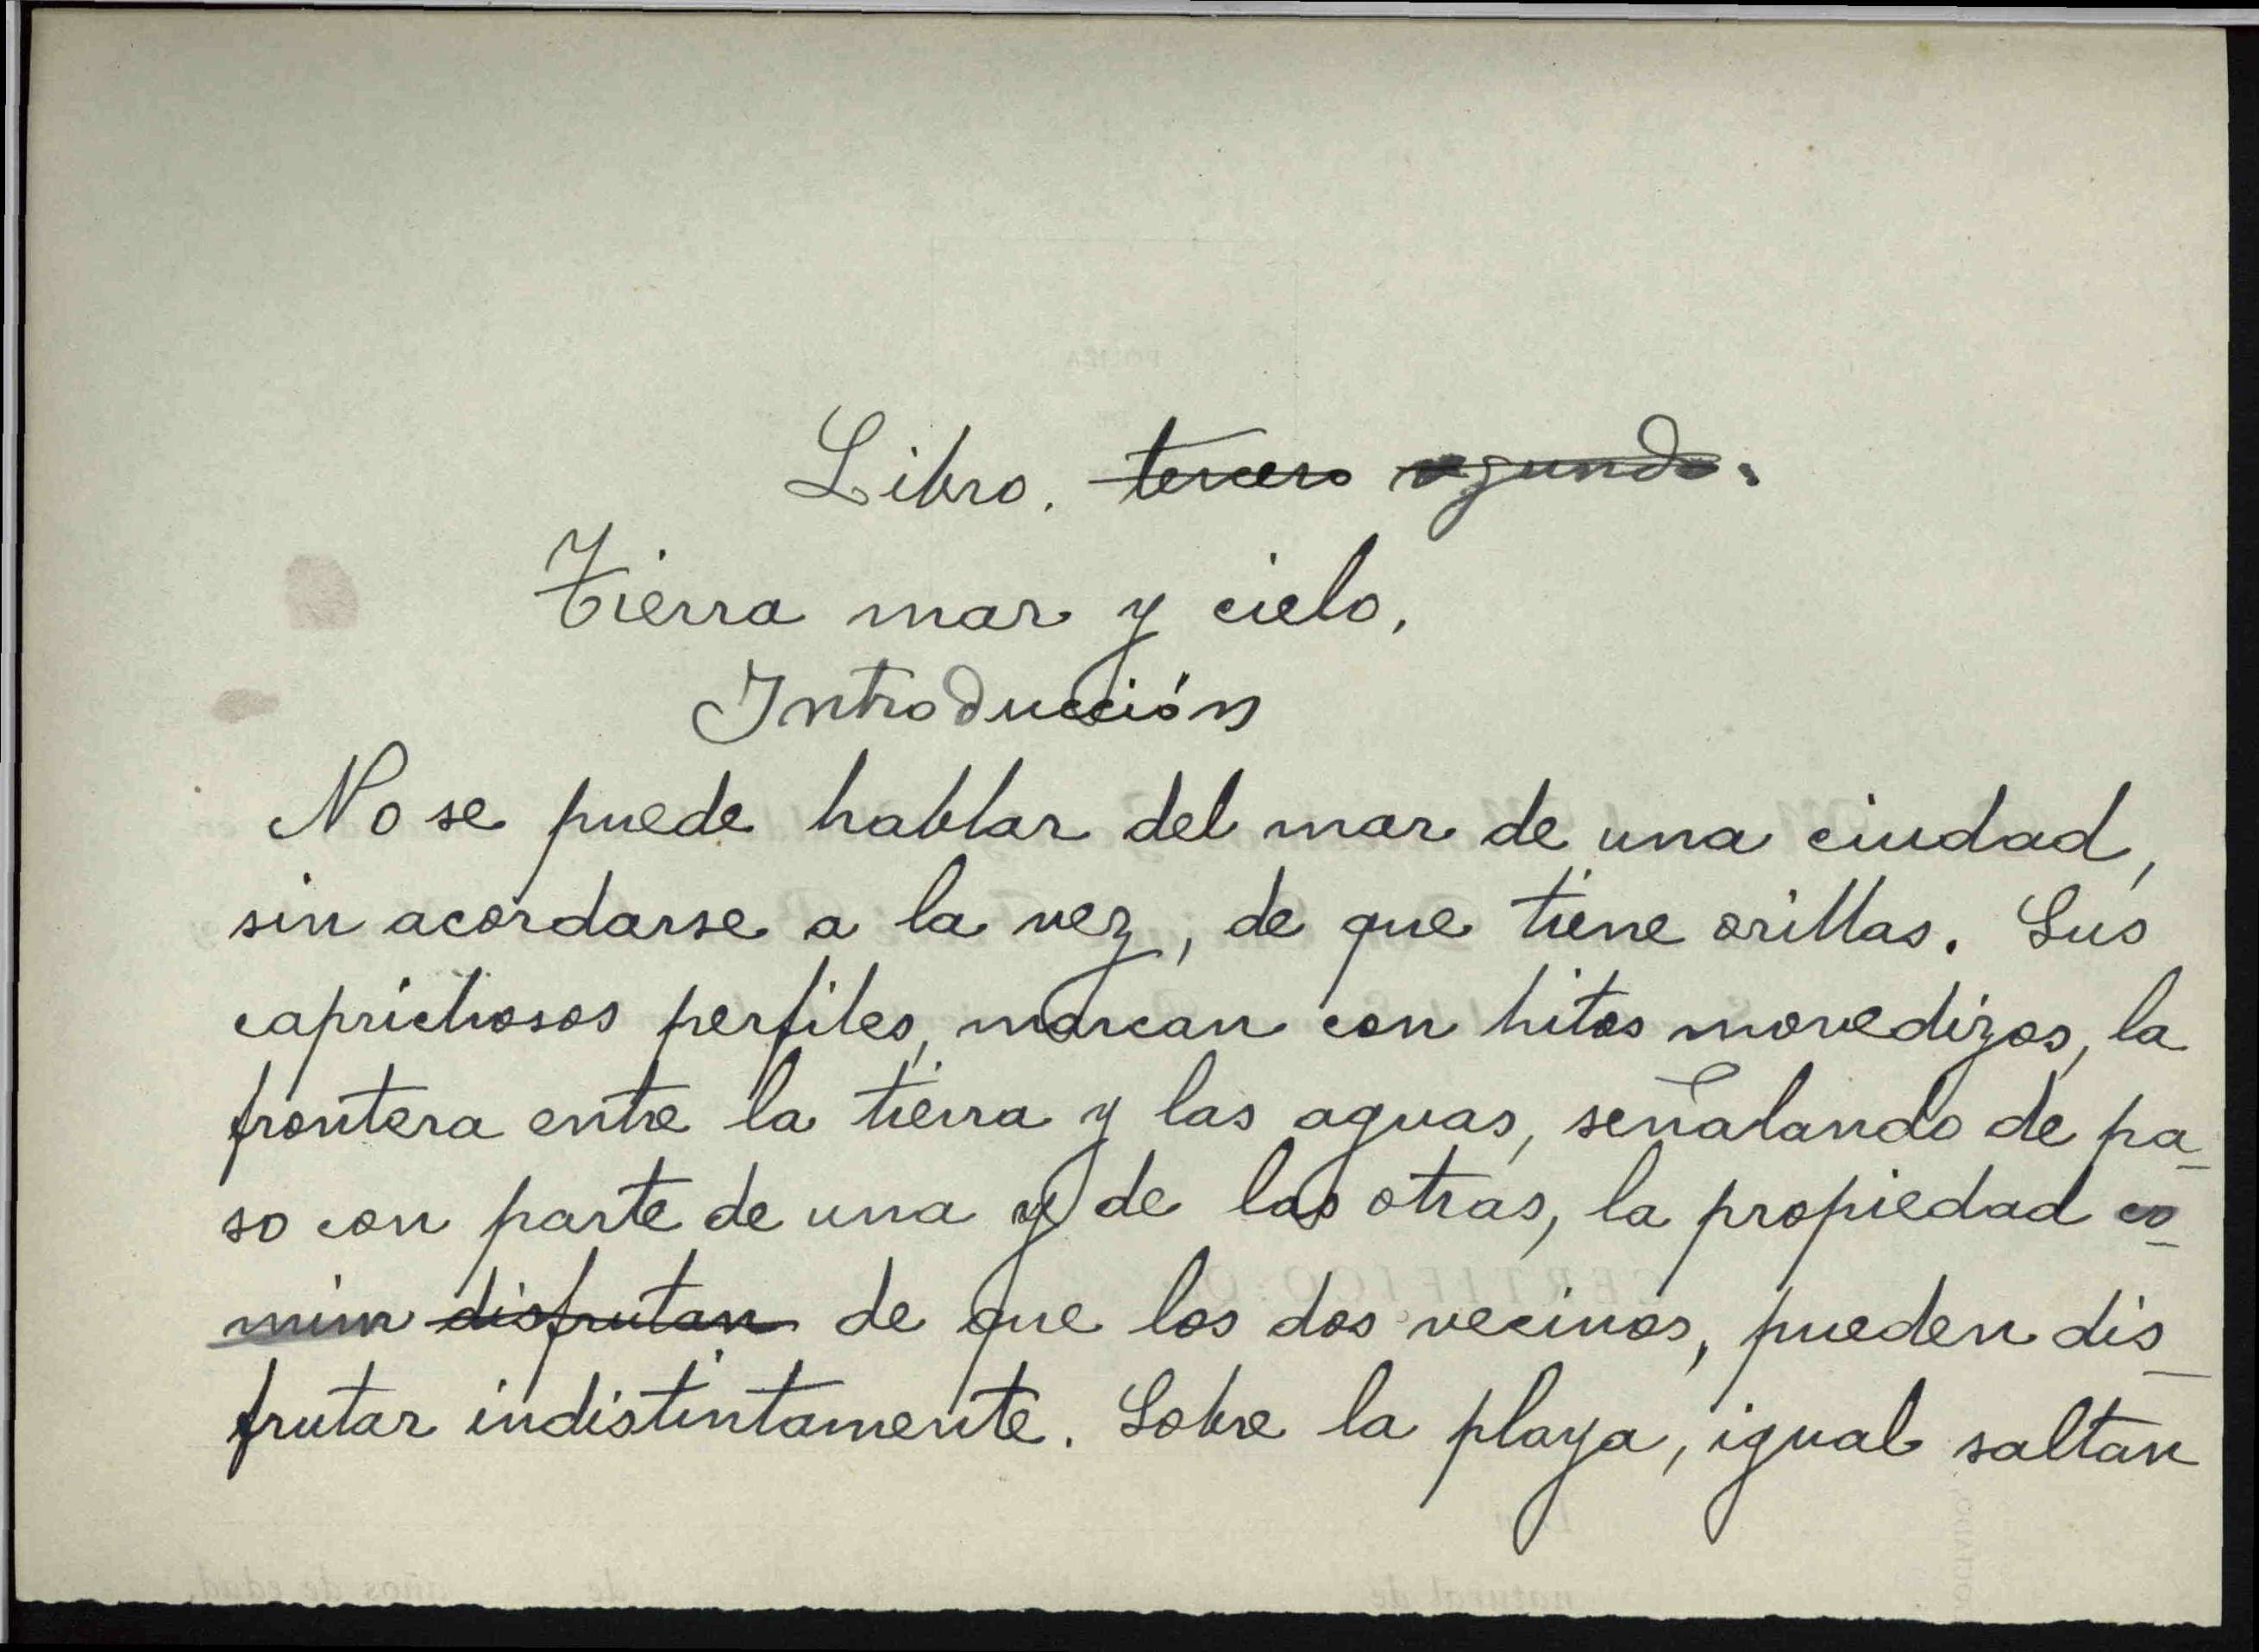 Libro. tercero segundo.
Tierra mar y cielo.
Introducción
No se puede hablar del mar de una ciudad,
sin acordarse a la vez, de que tiene orillas. Sus
caprichosos perfiles, marcan con hitos movedizos, la
frontera entre la tierra y las aguas, señalando de pa-
so con parte de una y de las otras, la propiedad co-
mún disfrutan de que los dos vecinos, pueden dis-
frutar indistintamente. Sobre la playa, igual saltan